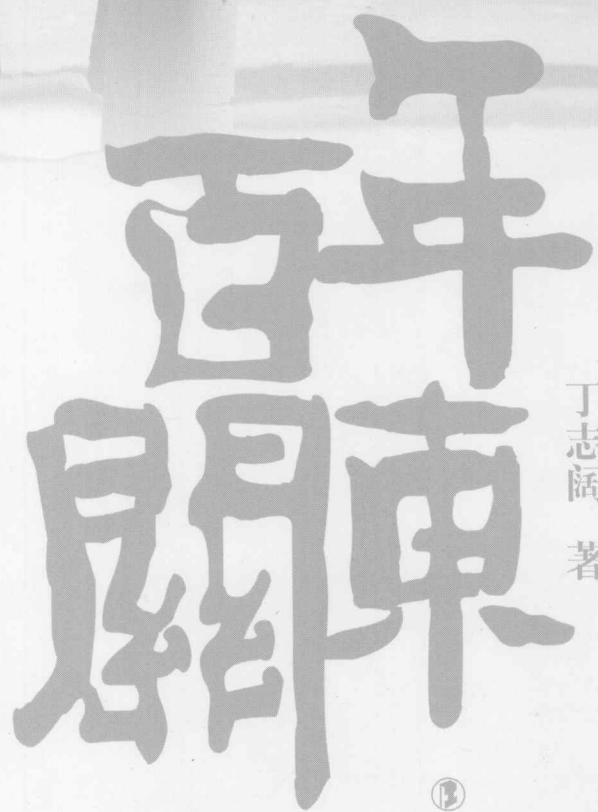 百年
關東
丁志阔 著